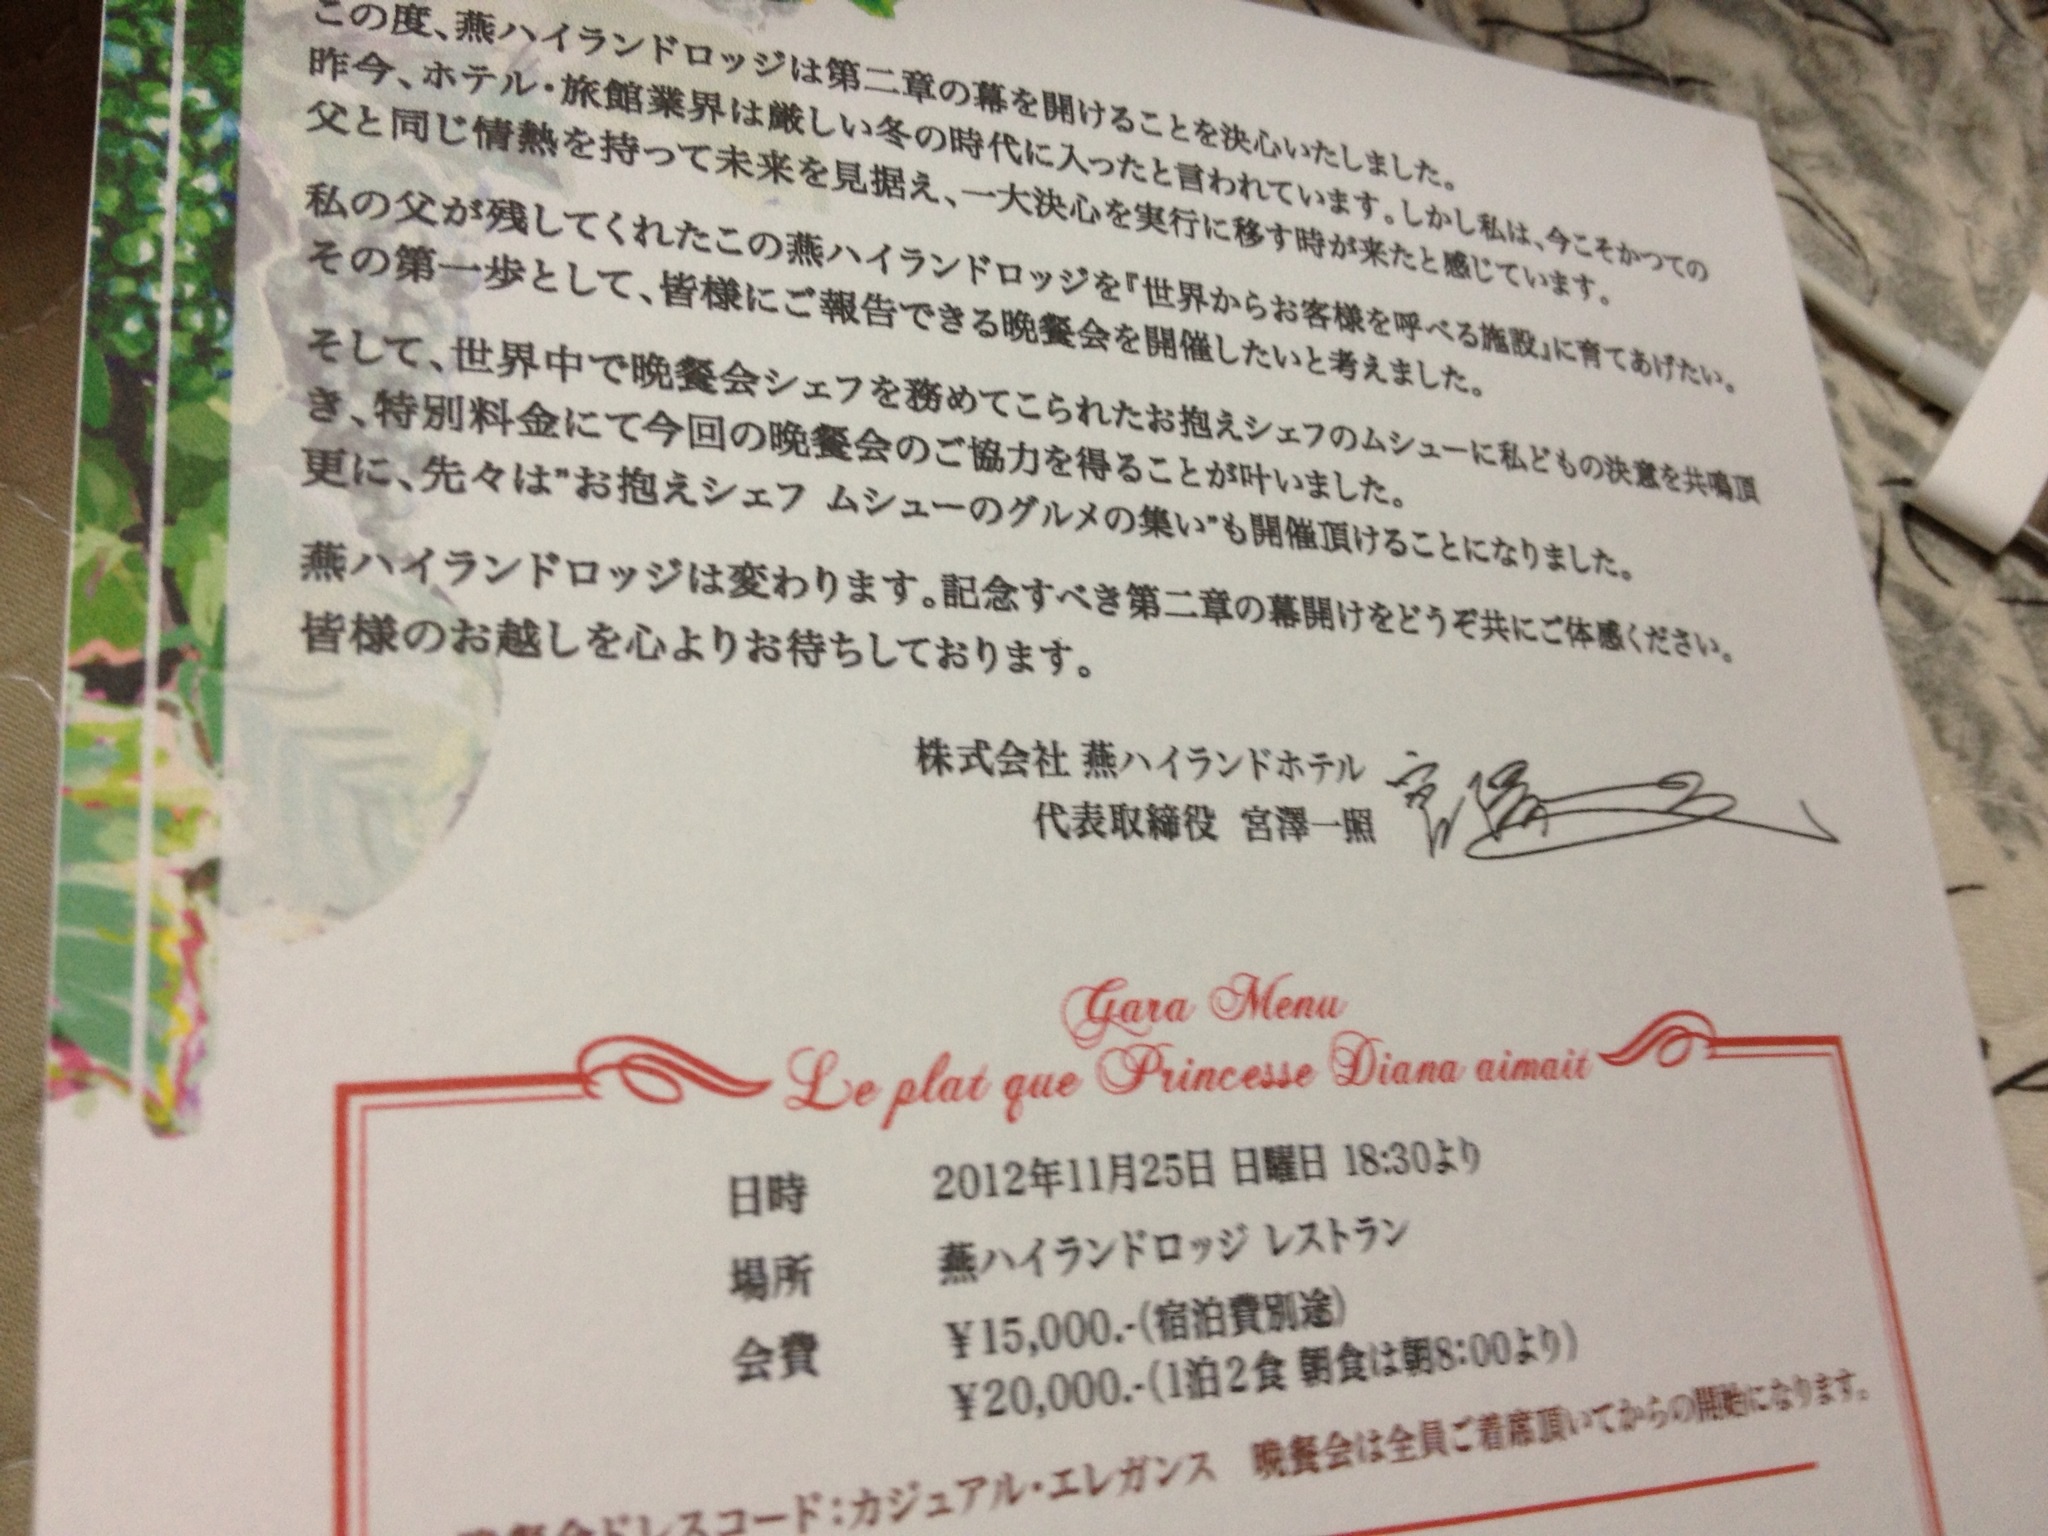 この度、燕ハイランドロッジは第二章の幕を開けることを決心いたしました。
昨今、ホテル・旅館業界は厳しい冬の時代に入ったと言われています。しかし私は、今こそかつての
父と同じ情熱を持って未来を見据え、一大決心を実行に移す時が来たと感じています。
私の父が残してくれたこの燕ハイランドロッジを『世界からお客様を呼べる施設』に育てあげたい。
その第一歩として、皆様にご報告できる晩餐会を開催したいと考えました。
そして、世界中で晩餐会シェフを務めてこられたお抱えシェフのムシューに私どもの決意を共鳴頂
き、特別料金にて今回の晩餐会のご協力を得ることが叶いました。
更に、先々は"お抱えシェフ ムシューのグルメの集い"も開催頂けることになりました。
燕ハイランドロッジは変わります。記念すべき第二章の幕開けをどうぞ共にご体感ください。
皆様のお越しを心よりお待ちしております。
株式会社 燕ハイランドホテル
代表取締役 宮澤一照
Gara Menu
Le plat que Princesse Diana aimait
日時 2012年11月25日 日曜日 18:30より
場所 燕ハイランドロッジ レストラン
会費 ¥15,000.-(宿泊費別途)
¥20,000.-(1泊2食 朝食は朝8:00より)
晩餐会ドレスコード:カジュアル・エレガンス 晩餐会は全員ご着席頂いてからの開始になります。